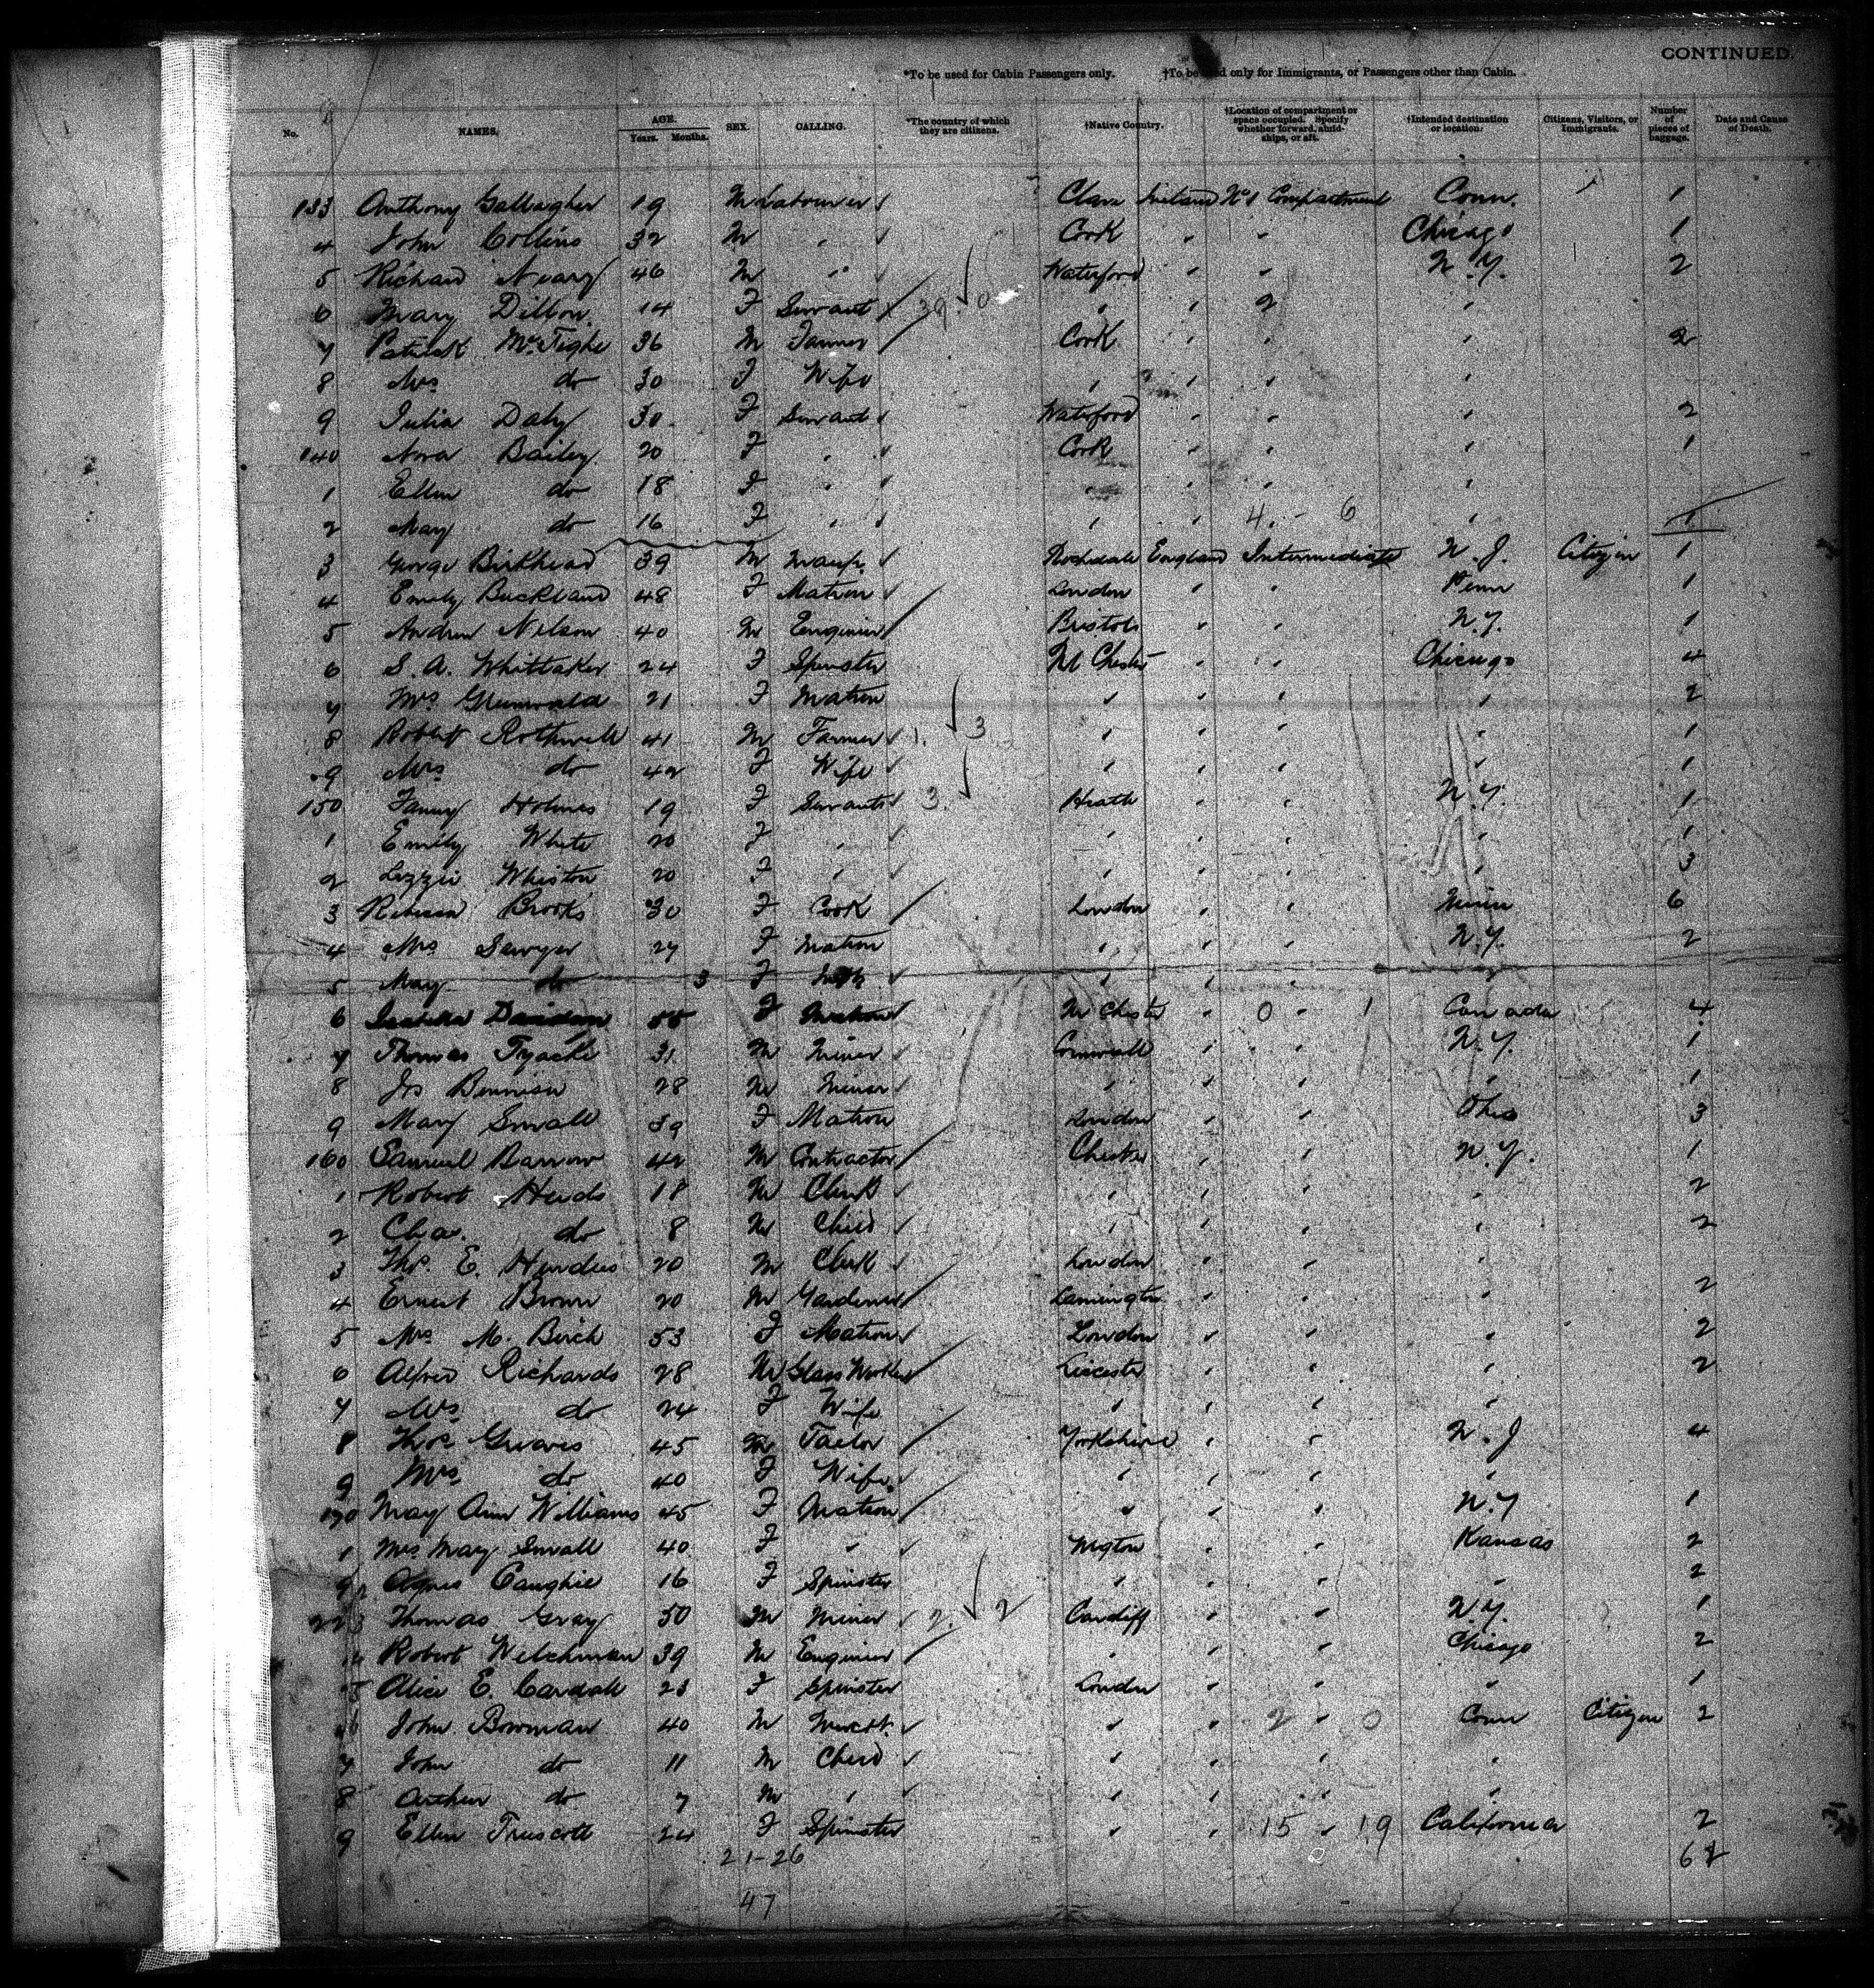 CONTINUED.
*To be used for Cabin Passengers only. †To be used only for Immigrants, or Passengers other than Cabin.
No. NAMES. AGE. Years. Months. SEX. CALLING. *The country of which they are citizens. †Native Country. †Location of compartment or space occupied. Specify whether forward, amidships, or aft. †Intended destination or location. Citizens, Visitors, or Immigrants. Number of pieces of baggage. Date and Cause of Death.
133 Anthony Gallagher 19 M Labourer Clare Ireland No 1 Compartment Conn. 1
4 John Collins 32 M " Cork " " Chicago 1
5 Richard Neary 46 M " Waterford " " N.Y. 2
6 Mary Dillon 14 F Servant 39 0 " " 2 "
7 Patrick McTighe 36 M Farmer Cork " " " 2
8 Mrs do 30 F Wife " " " "
9 Julia Daly 30 F Servant Waterford " " " 2
140 Nora Bailey 20 F " Cork " " " 1
1 Ellen do 18 F " " " " "
2 Mary do 16 F " " " 4 - 6 " 1
3 George Birkhead 39 M Manfr. Rochdale England Intermediate N.J. Citizen 1
4 Emily Buckland 48 F Matron London " " Penn 1
5 Andrew Nelson 40 M Engineer Bristol " " N.Y. 1
6 S. A. Whittaker 24 F Spinster M Chester " " Chicago 4
7 Mrs Grunwald 21 F Matron " " " " 2
8 Robert Rothwell 41 M Farmer 1. 3 " " " " 1
9 Mrs do 42 F Wife " " " " 1
150 Fanny Holmes 19 F Servants 3 Heath " " N.Y. 1
1 Emily White 20 F " " " " " 1
2 Lizzie Whiston 20 F " " " " " 3
3 Rebecca Brooks 30 F Cook London " " Minn 6
4 Mrs Sawyer 27 F Matron " " " N.Y. 2
5 May do 3 F " " " "
6 Isabella 55 F Matron M Chester " 0 - 1 Canada 4
7 Thomas Tyache 31 M Miner Cornwall " " N.Y. 1
8 Js Bennison 28 M Miner " " " " 1
9 Mary Small 39 F Matron London " " Ohio 3
160 Samuel Barrow 42 M Contractor Chester " " N.Y. 1
1 Robert Hurds 18 M Clerk " " " " 2
2 Chas. do 8 M Child " " " " 2
3 Thos. E. 20 M Clerk London " " "
4 Ernest Brown 20 M Gardener Lamington " " " 2
5 Mrs M. Birch 53 F Matron London " " " 2
6 Alfred Richards 28 M Glass Worker Leicester " " " 2
7 Mrs do 24 F Wife " " " "
8 Thos Greaves 45 M Tailor Yorkshire " " N.J 4
9 Mrs do 40 F Wife " " " "
170 Mary Ann Williams 45 F Matron " " " N.Y 1
1 Mrs Mary Small 40 F " " " Kansas 2
2 Agnes Caughie 16 F Spinster " " " " 2
3 Thomas Gray 50 M Miner 2. 2 Cardiff " " N.Y. 1
4 Robert Welchman 39 M Engineer " " " Chicago 2
5 Alice E. Cardall 23 F Spinster London " " " 1
6 John Bowman 40 M Mercht. " " 2 - 0 Conn Citizen 2
7 John do 11 M Child " " " "
8 Arthur do 7 M " " " " "
9 Ellen Truscott 24 F Spinster " " 15 - 19 California 2
21-26 68
47